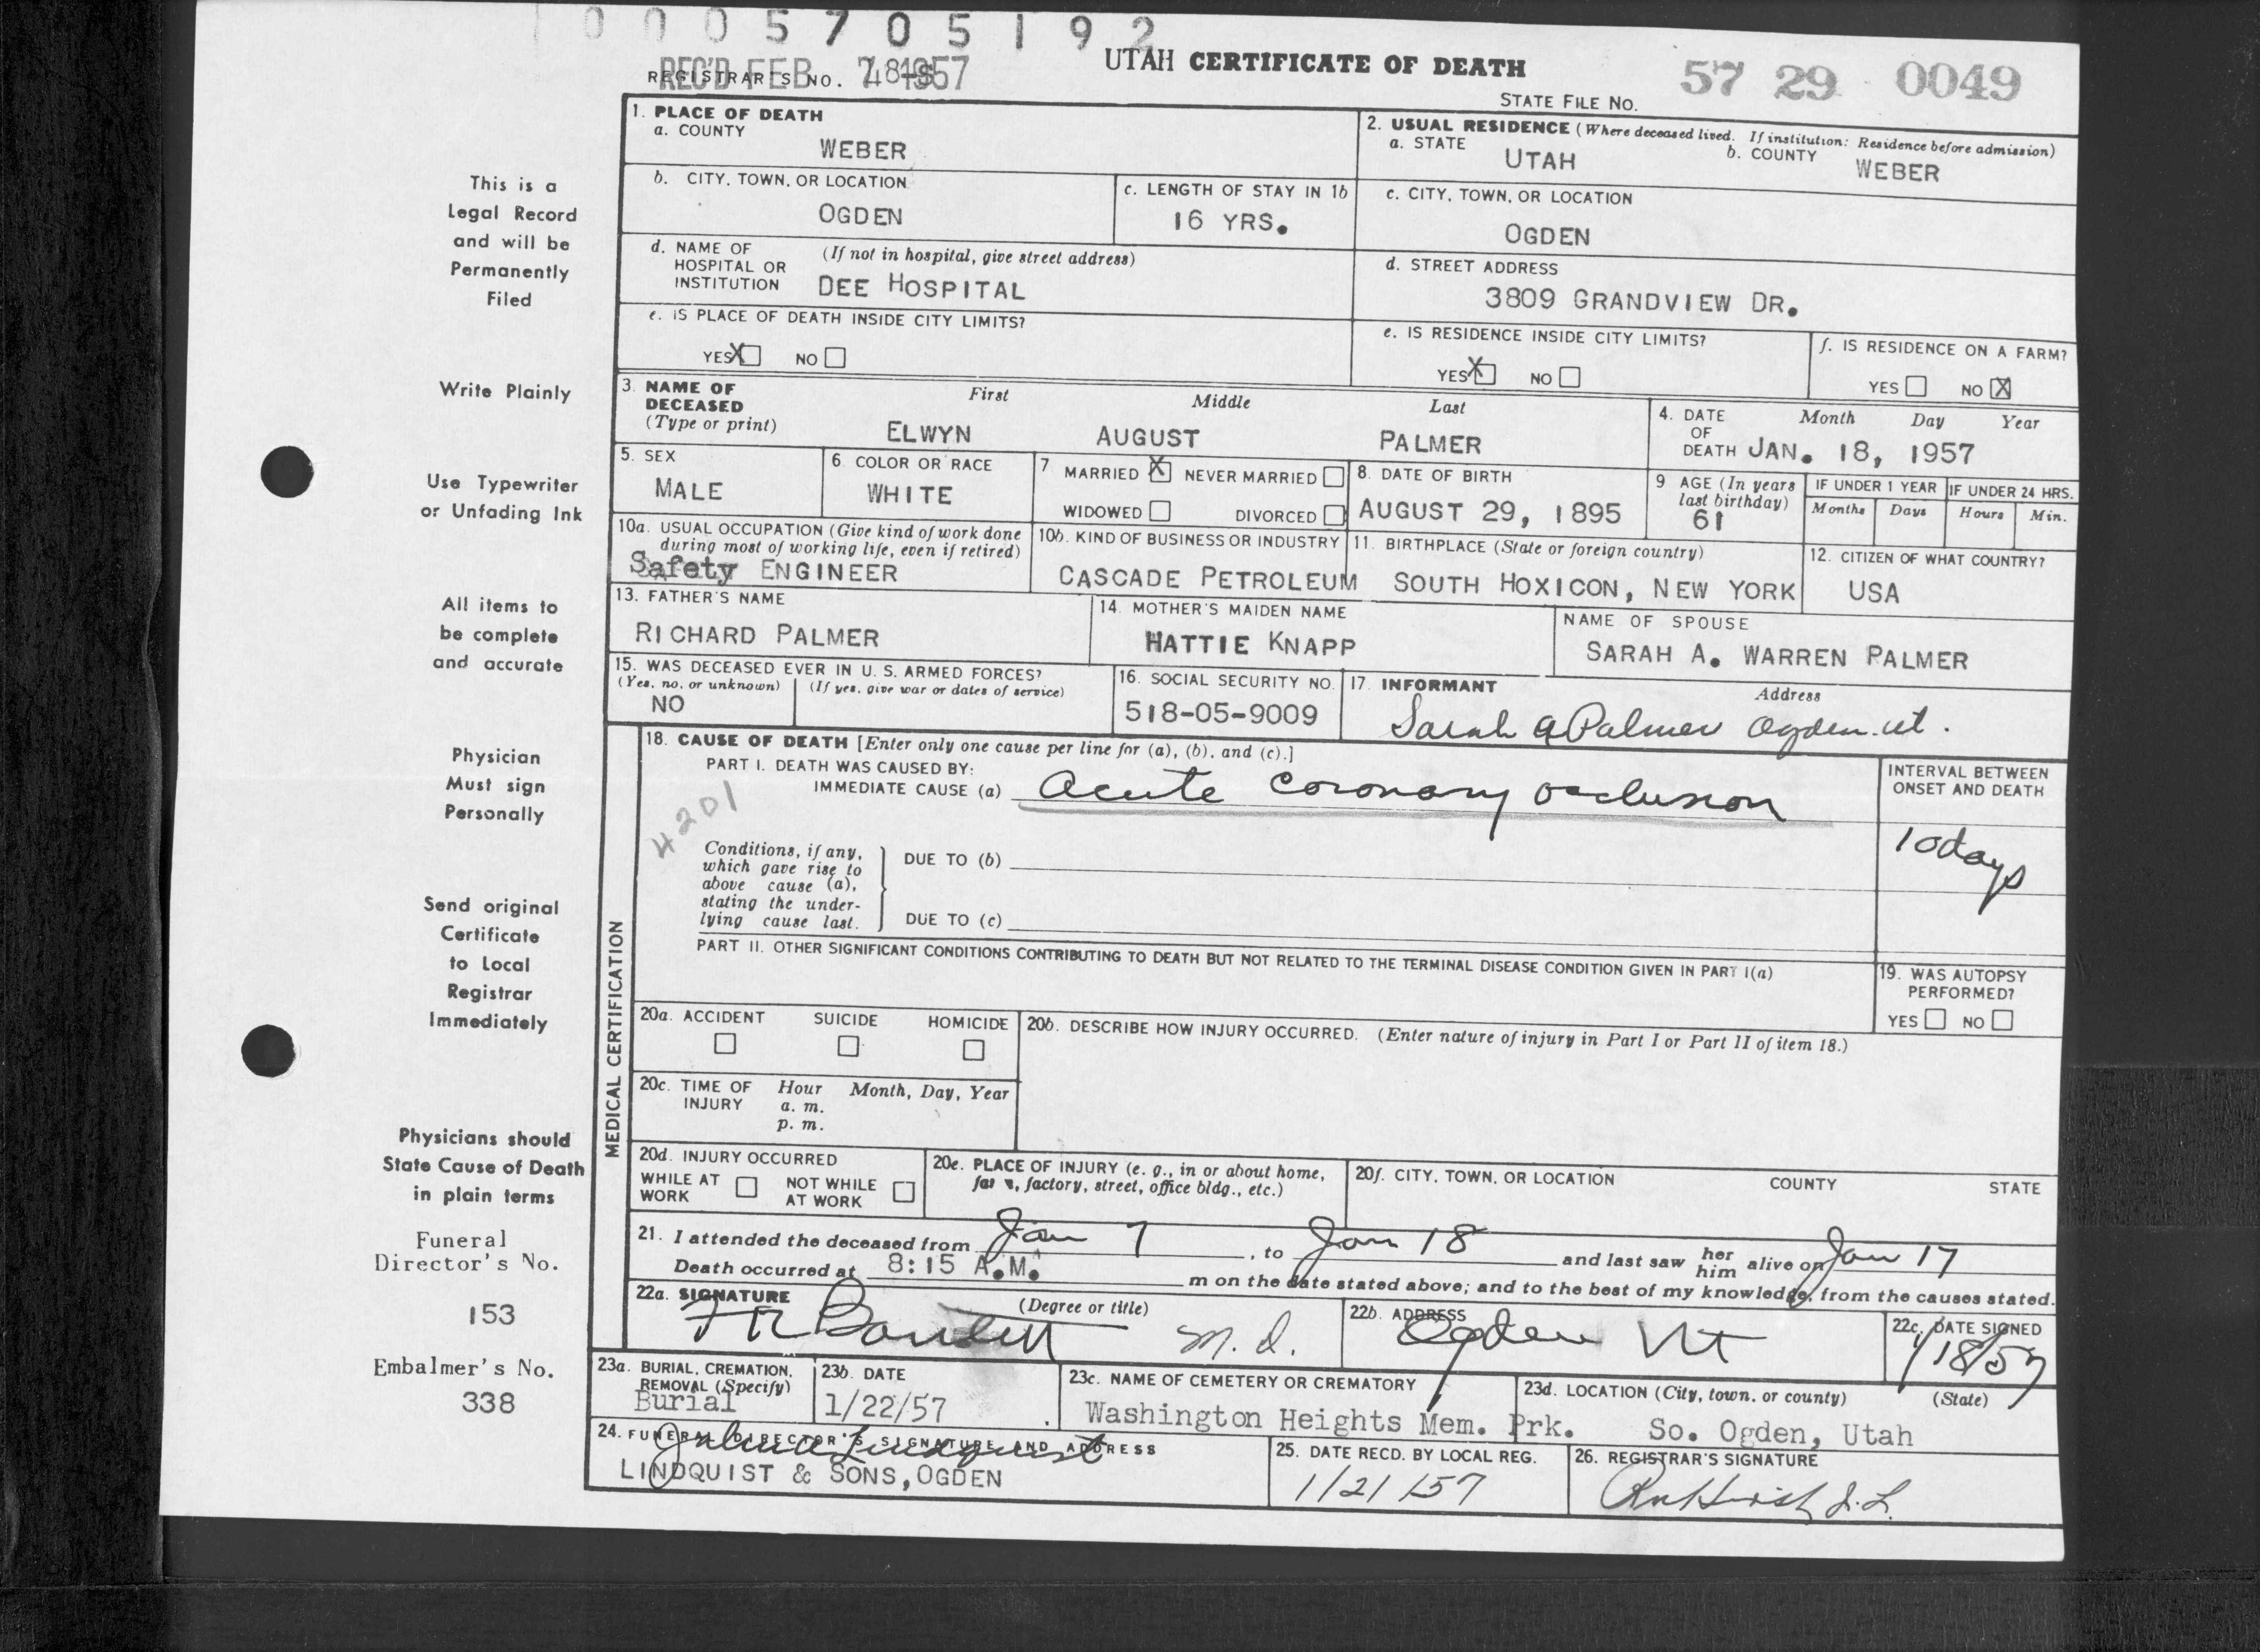 0005705192
REC'D FEB 7 1957
REGISTRAR'S NO. 48-S
UTAH CERTIFICATE OF DEATH
STATE FILE NO. 57 29 0049
1. PLACE OF DEATH
a. COUNTY
WEBER
2. USUAL RESIDENCE (Where deceased lived. If institution: Residence before admission)
a. STATE UTAH b. COUNTY WEBER
b. CITY, TOWN, OR LOCATION
OGDEN
c. LENGTH OF STAY IN 1b
16 YRS.
c. CITY, TOWN, OR LOCATION
OGDEN
d. NAME OF HOSPITAL OR INSTITUTION (If not in hospital, give street address)
DEE HOSPITAL
d. STREET ADDRESS
3809 GRANDVIEW DR.
e. IS PLACE OF DEATH INSIDE CITY LIMITS?
YES X NO
e. IS RESIDENCE INSIDE CITY LIMITS?
YES X NO
f. IS RESIDENCE ON A FARM?
YES NO X
3. NAME OF DECEASED (Type or print)
First Middle Last
ELWYN AUGUST PALMER
4. DATE OF DEATH Month Day Year
JAN. 18, 1957
5. SEX
MALE
6. COLOR OR RACE
WHITE
7 MARRIED X NEVER MARRIED
WIDOWED DIVORCED
8. DATE OF BIRTH
AUGUST 29, 1895
9 AGE (In years last birthday)
61
IF UNDER 1 YEAR IF UNDER 24 HRS.
Months Days Hours Min.
10a. USUAL OCCUPATION (Give kind of work done during most of working life, even if retired)
Safety ENGINEER
10b. KIND OF BUSINESS OR INDUSTRY
CASCADE PETROLEUM
11. BIRTHPLACE (State or foreign country)
SOUTH HOXICON, NEW YORK
12. CITIZEN OF WHAT COUNTRY?
USA
13. FATHER'S NAME
RICHARD PALMER
14. MOTHER'S MAIDEN NAME
HATTIE KNAPP
NAME OF SPOUSE
SARAH A. WARREN PALMER
15. WAS DECEASED EVER IN U. S. ARMED FORCES?
(Yes, no, or unknown) (If yes, give war or dates of service)
NO
16. SOCIAL SECURITY NO.
518-05-9009
17. INFORMANT Address
Sarah A Palmer Ogden Ut.
MEDICAL CERTIFICATION
18. CAUSE OF DEATH [Enter only one cause per line for (a), (b), and (c).]
PART I. DEATH WAS CAUSED BY:
IMMEDIATE CAUSE (a) Acute Coronary Occlusion
4201
INTERVAL BETWEEN ONSET AND DEATH
10 days
Conditions, if any, which gave rise to above cause (a), stating the underlying cause last.
DUE TO (b)
DUE TO (c)
PART II. OTHER SIGNIFICANT CONDITIONS CONTRIBUTING TO DEATH BUT NOT RELATED TO THE TERMINAL DISEASE CONDITION GIVEN IN PART I(a)
19. WAS AUTOPSY PERFORMED?
YES NO
20a. ACCIDENT SUICIDE HOMICIDE
20b. DESCRIBE HOW INJURY OCCURRED. (Enter nature of injury in Part I or Part II of item 18.)
20c. TIME OF INJURY Hour Month, Day, Year
a. m.
p. m.
20d. INJURY OCCURRED
WHILE AT WORK NOT WHILE AT WORK
20e. PLACE OF INJURY (e. g., in or about home, farm, factory, street, office bldg., etc.)
20f. CITY, TOWN, OR LOCATION COUNTY STATE
21. I attended the deceased from Jan 7, to Jan 18 and last saw her him alive on Jan 17
Death occurred at 8:15 A.M. m on the date stated above; and to the best of my knowledge, from the causes stated.
22a. SIGNATURE (Degree or title)
M.D.
22b. ADDRESS
Ogden Ut
22c. DATE SIGNED
1/18/57
23a. BURIAL, CREMATION, REMOVAL (Specify)
Burial
23b. DATE
1/22/57
23c. NAME OF CEMETERY OR CREMATORY
Washington Heights Mem. Prk.
23d. LOCATION (City, town, or county) (State)
So. Ogden, Utah
24. FUNERAL DIRECTOR'S SIGNATURE AND ADDRESS
LINDQUIST & SONS, OGDEN
25. DATE RECD. BY LOCAL REG.
1/21/57
26. REGISTRAR'S SIGNATURE
This is a
Legal Record
and will be
Permanently
Filed
Write Plainly
Use Typewriter
or Unfading Ink
All items to
be complete
and accurate
Physician
Must sign
Personally
Send original
Certificate
to Local
Registrar
Immediately
Physicians should
State Cause of Death
in plain terms
Funeral
Director's No.
153
Embalmer's No.
338